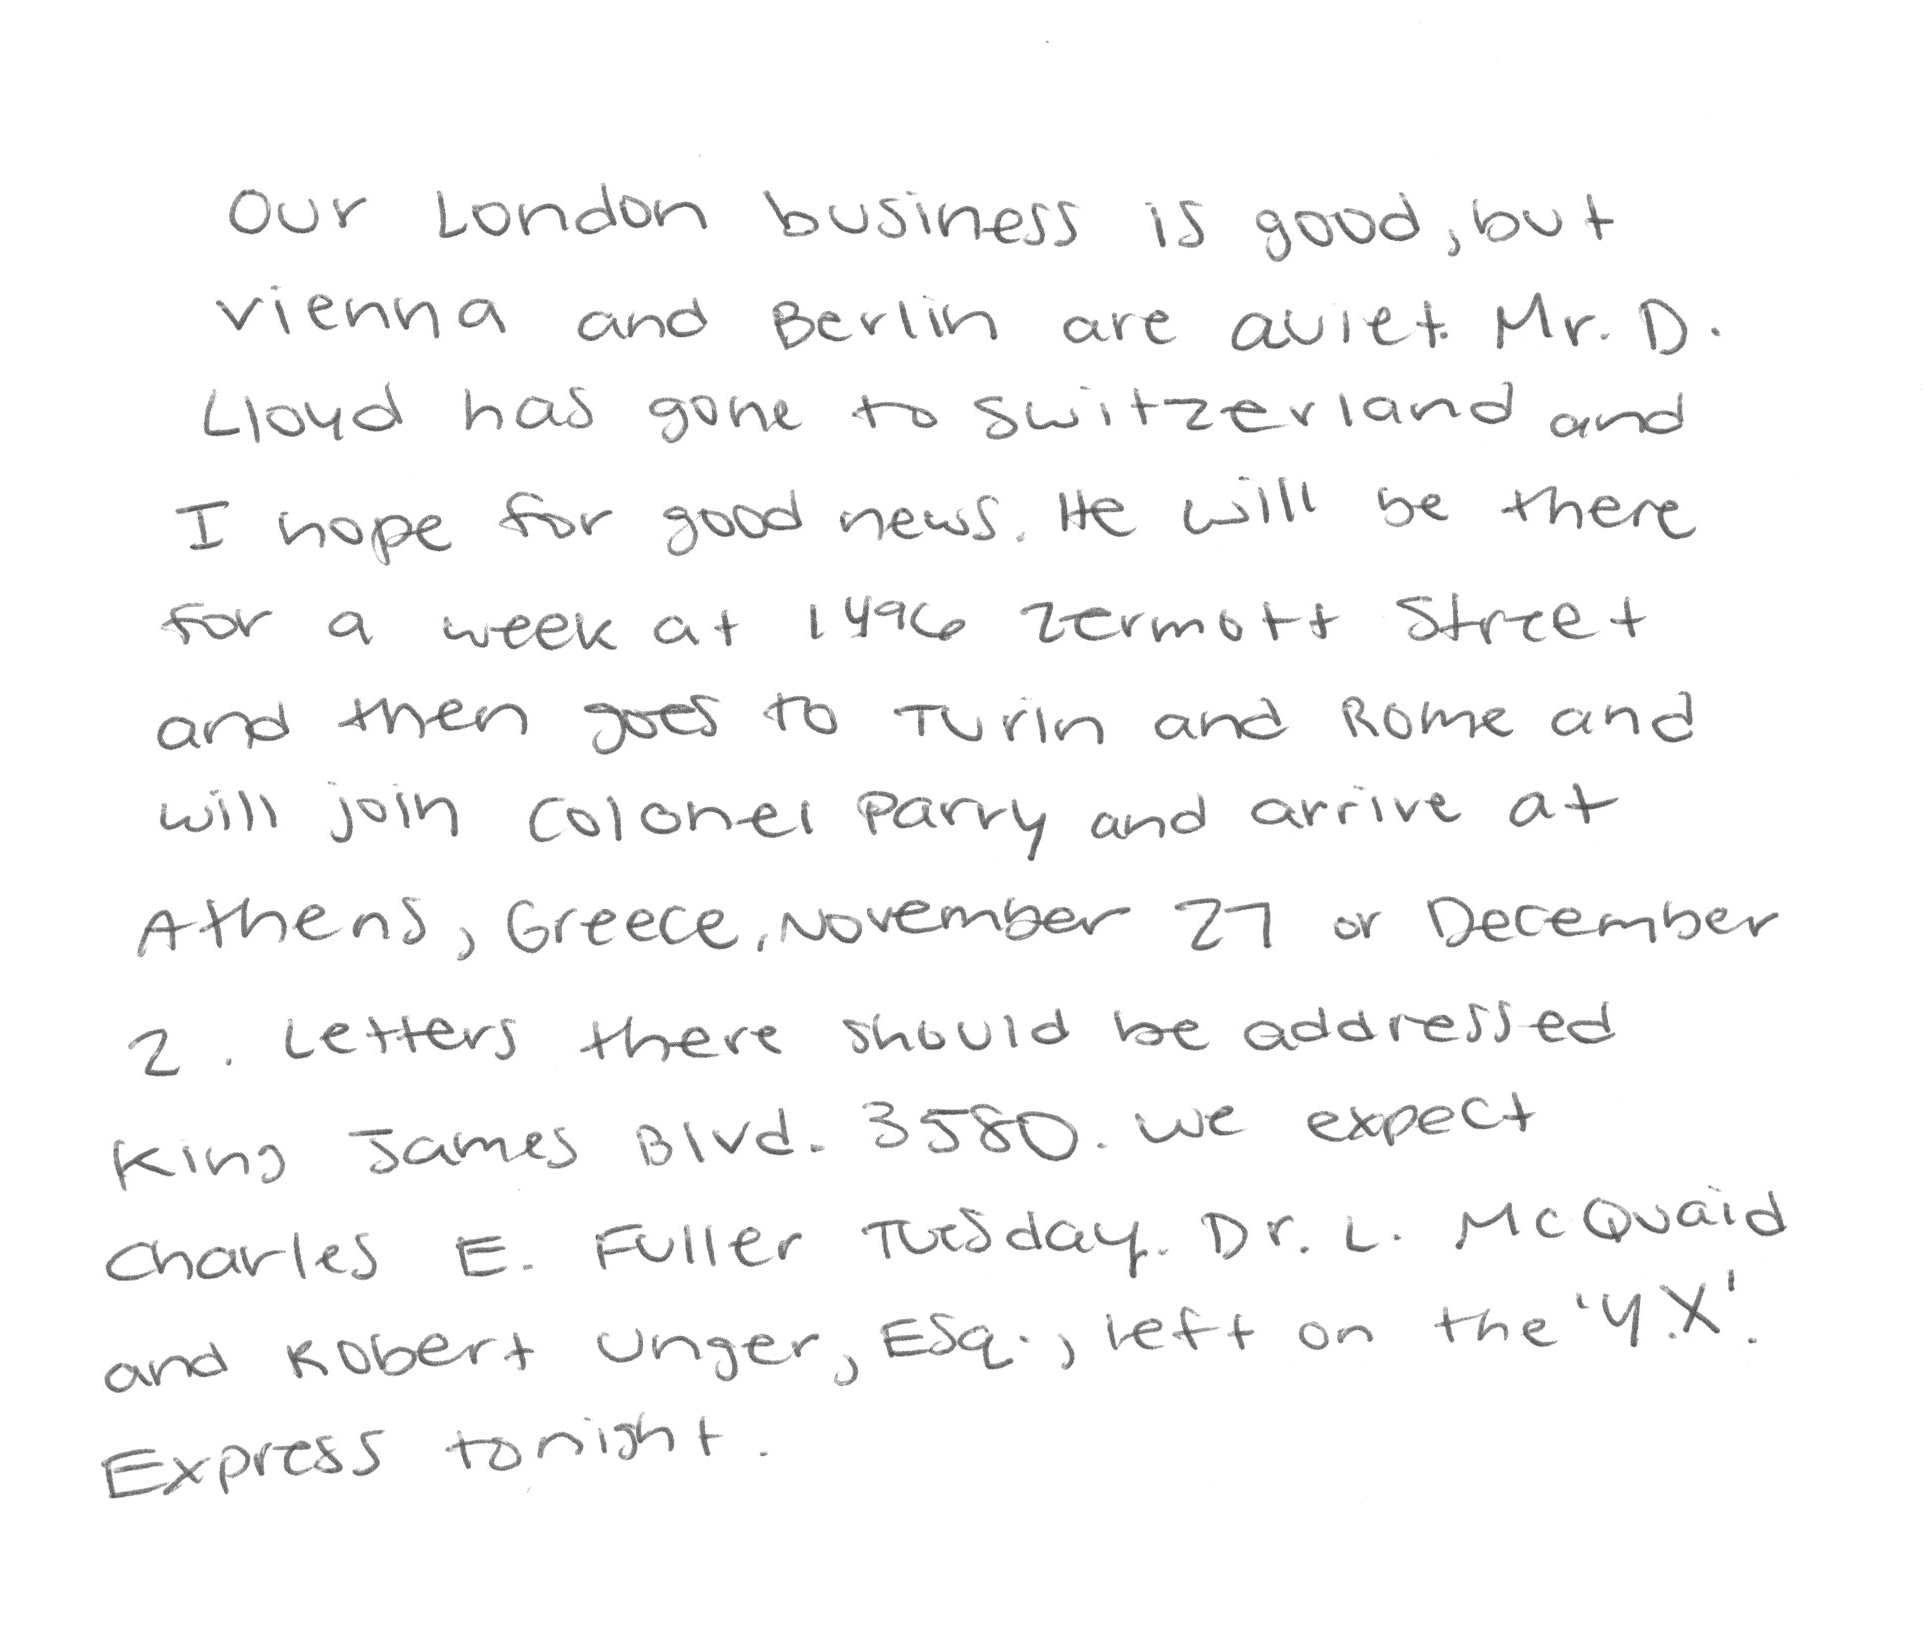 Our London business is good, but
Vienna and Berlin are quiet. Mr. D.
Lloyd has gone to Switzerland and
I hope for good news. He will be there
for a week at 1496 Zermott Street
and then goes to Turin and Rome and
will join Colonel Parry and arrive at
Athens, Greece, November 27 or December
2. Letters there should be addressed
King James Blvd. 3580. We expect
Charles E. Fuller Tuesday. Dr. L. McQuaid
and Robert Unger, Esq., left on the 'Y.X'.
Express tonight.